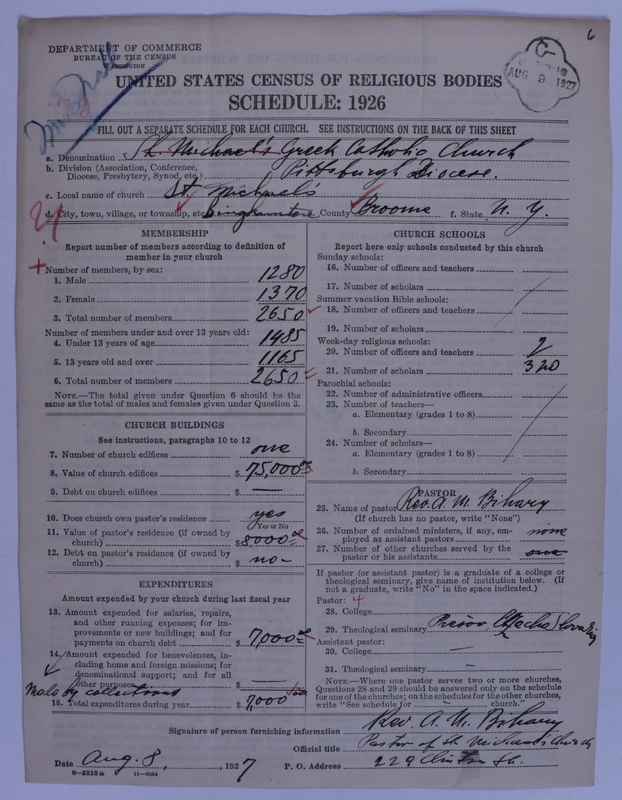 6
DEPARTMENT OF COMMERCE
BUREAU OF THE CENSUS
WASHINGTON
AUG 9 1927
UNITED STATES CENSUS OF RELIGIOUS BODIES
SCHEDULE: 1926
FILL OUT A SEPARATE SCHEDULE FOR EACH CHURCH. SEE INSTRUCTIONS ON THE BACK OF THIS SHEET
a. Denomination St. Michael's Greek Catholic Church
b. Division (Association, Conference, Diocese, Presbytery, Synod, etc.) Pittsburgh Diocese.
c. Local name of church St. Michael's
d. City, town, village, or township, etc. Binghamton County Broome f. State N. Y.
MEMBERSHIP
Report number of members according to definition of
member in your church
Number of members, by sex:
1. Male 1280
2. Female 1370
3. Total number of members 2650
Number of members under and over 13 years old:
4. Under 13 years of age 1485
5. 13 years old and over 1165
6. Total number of members 2650
NOTE.—The total given under Question 6 should be
same as the total of males and females given under Question 3.
CHURCH BUILDINGS
See instructions, paragraphs 10 to 12
7. Number of church edifices one
8. Value of church edifices $ 75,000
9. Debt on church edifices $ —
10. Does church own pastor's residence yes
Yes or No
11. Value of pastor's residence (if owned by
church) $ 8000
12. Debt on pastor's residence (if owned by
church) $ no-
EXPENDITURES
Amount expended by your church during last fiscal year
13. Amount expended for salaries, repairs,
and other running expenses; for im-
provements or new buildings; and for
payments on church debt $ 7,000
14. Amount expended for benevolences, in-
cluding home and foreign missions; for
denominational support; and for all
other purposes $ —
Made by collections
15. Total expenditures during year $ 7,000
CHURCH SCHOOLS
Report here only schools conducted by this church
Sunday schools:
16. Number of officers and teachers
17. Number of scholars
Summer vacation Bible schools:
18. Number of officers and teachers
19. Number of scholars
Week-day religious schools:
20. Number of officers and teachers 2
21. Number of scholars 320
Parochial schools:
22. Number of administrative officers
23. Number of teachers—
a. Elementary (grades 1 to 8)
b. Secondary
24. Number of scholars—
a. Elementary (grades 1 to 8)
b. Secondary
PASTOR
25. Name of pastor Rev. A. M. Bihary
(If church has no pastor, write "None")
26. Number of ordained ministers, if any, em-
ployed as assistant pastors none
27. Number of other churches served by the
pastor or his assistants one
If pastor (or assistant pastor) is a graduate of a college or
theological seminary, give name of institution below. (If
not a graduate, write "No" in the space indicated.)
Pastor:
28. College
29. Theological seminary Presov,
Assistant pastor:
30. College —
31. Theological seminary —
NOTE.—Where one pastor serves two or more churches,
Questions 28 and 29 should be answered only on the schedule
for one of the churches; on the schedules for the other churches,
write "See schedule for church."
Signature of person furnishing information Rev. A. M. Bihary
Official title Pastor of St. Michael's Church
Date Aug. 8, 1927 P. O. Address 229 Clinton St.
8-5518a 11-9264